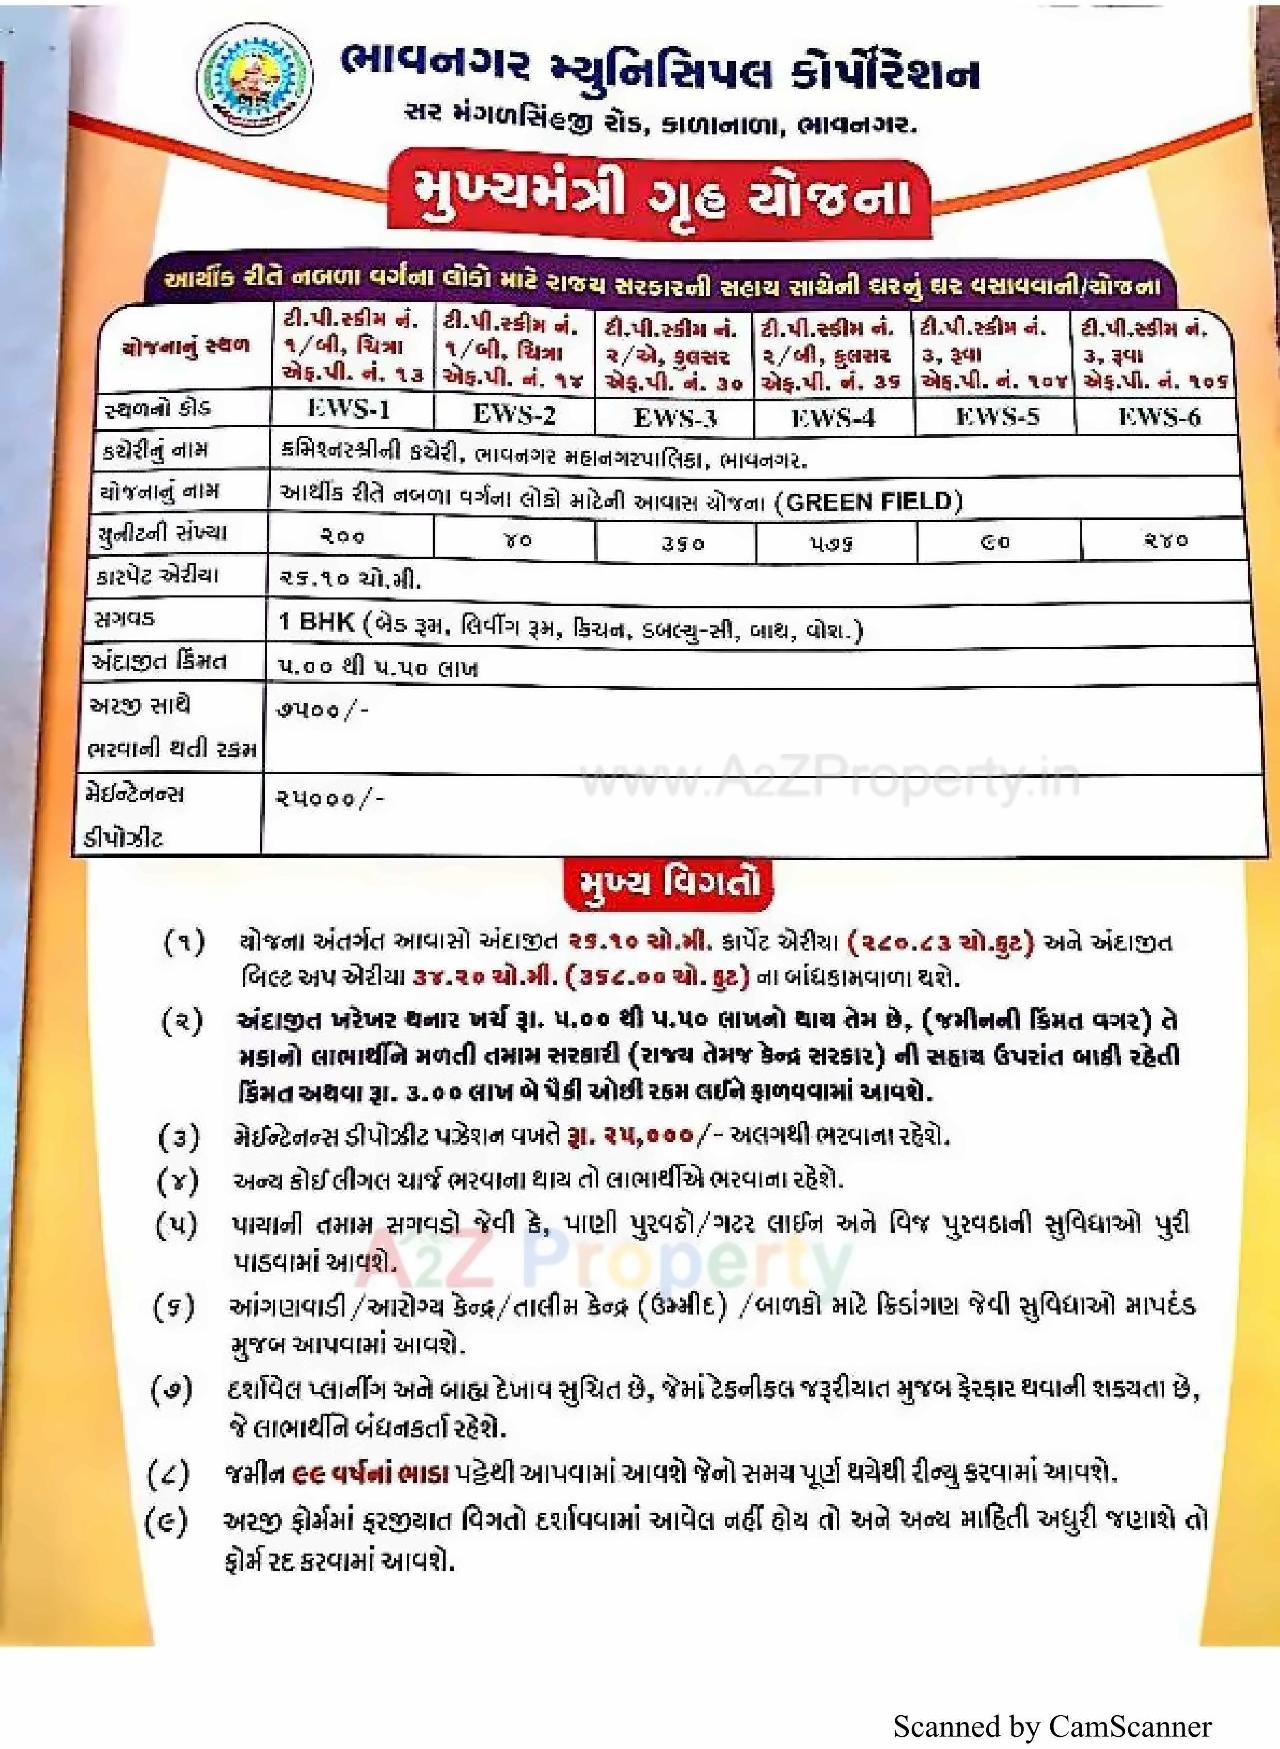 ભાવનગર મ્યુનિસિપલ કોર્પોરેશન
સર મંગળસિંહજી રોડ, કાળાનાળા, ભાવનગર.
મુખ્યમંત્રી ગૃહ યોજના
આર્થીક રીતે નબળા વર્ગના લોકો માટે રાજ્ય સરકારની સહાય સાથેની ઘરનું ઘર વસાવવાની/યોજના
યોજનાનું સ્થળ
ટી.પી.સ્કીમ નં. ૧/બી, ચિત્રા એફ.પી. નં. ૧૩
ટી.પી.સ્કીમ નં. ૧/બી, ચિત્રા એફ.પી. નં. ૧૪
ટી.પી.સ્કીમ નં. ૨/એ, ફુલસર એફ.પી. નં. ૩૦
ટી.પી.સ્કીમ નં. ૨/બી, ફુલસર એફ.પી. નં. ૩૬
ટી.પી.સ્કીમ નં. ૩, રૂવા એફ.પી. નં. ૧૦૪
ટી.પી.સ્કીમ નં. ૩, રૂવા એફ.પી. નં. ૧૦૬
સ્થળનો કોડ EWS-1 EWS-2 EWS-3 EWS-4 EWS-5 EWS-6
કચેરીનું નામ કમિશ્નરશ્રીની કચેરી, ભાવનગર મહાનગરપાલિકા, ભાવનગર.
યોજનાનું નામ આર્થીક રીતે નબળા વર્ગના લોકો માટેની આવાસ યોજના (GREEN FIELD)
યુનીટની સંખ્યા ૨૦૦ ૪૦ ૩૬૦ ૫૭૬ ૯૦ ૨૪૦
કારપેટ એરીયા ૨૬.૧૦ ચો.મી.
સગવડ 1 BHK (બેડ રૂમ, લિવીંગ રૂમ, કિચન, ડબલ્યુ-સી, બાથ, વોશ.)
અંદાજીત કિંમત ૫.૦૦ થી ૫.૫૦ લાખ
અરજી સાથે ૭૫૦૦/-
ભરવાની થતી રકમ
મેઈન્ટેનન્સ ૨૫૦૦૦/-
ડીપોઝીટ
www.A2ZProperty.in
મુખ્ય વિગતો
(૧) યોજના અંતર્ગત આવાસો અંદાજીત ૨૬.૧૦ ચો.મી. કાર્પેટ એરીયા (૨૮૦.૮૩ ચો.ફુટ) અને અંદાજીત
બિલ્ટ અપ એરીયા ૩૪.૨૦ ચો.મી. (૩૬૮.૦૦ ચો. ફુટ) ના બાંધકામવાળા થશે.
(૨) અંદાજીત ખરેખર થનાર ખર્ચ રૂા. ૫.૦૦ થી ૫.૫૦ લાખનો થાય તેમ છે, (જમીનની કિંમત વગર) તે
મકાનો લાભાર્થીને મળતી તમામ સરકારી (રાજ્ય તેમજ કેન્દ્ર સરકાર) ની સહાય ઉપરાંત બાકી રહેતી
કિંમત અથવા રૂા. ૩.૦૦ લાખ બે પૈકી ઓછી રકમ લઈને ફાળવવામાં આવશે.
(૩) મેઈન્ટેનન્સ ડીપોઝીટ પઝેશન વખતે રૂા. ૨૫,૦૦૦/- અલગથી ભરવાના રહેશે.
(૪) અન્ય કોઈ લીગલ ચાર્જ ભરવાના થાય તો લાભાર્થીએ ભરવાના રહેશે.
(૫) પાયાની તમામ સગવડો જેવી કે, પાણી પુરવઠો/ગટર લાઈન અને વિજ પુરવઠાની સુવિધાઓ પુરી
પાડવામાં આવશે.
A2Z Property
(૬) આંગણવાડી/આરોગ્ય કેન્દ્ર/તાલીમ કેન્દ્ર (ઉમ્મીદ) /બાળકો માટે ક્રિડાંગણ જેવી સુવિધાઓ માપદંડ
મુજબ આપવામાં આવશે.
(૭) દર્શાવેલ પ્લાનીંગ અને બાહ્ય દેખાવ સુચિત છે, જેમાં ટેકનીકલ જરૂરીયાત મુજબ ફેરફાર થવાની શક્યતા છે,
જે લાભાર્થીને બંધનકર્તા રહેશે.
(૮) જમીન ૯૯ વર્ષનાં ભાડા પટ્ટેથી આપવામાં આવશે જેનો સમય પૂર્ણ થયેથી રીન્યુ કરવામાં આવશે.
(૯) અરજી ફોર્મમાં ફરજીયાત વિગતો દર્શાવવામાં આવેલ નહીં હોય તો અને અન્ય માહિતી અધુરી જણાશે તો
ફોર્મ રદ કરવામાં આવશે.
Scanned by CamScanner